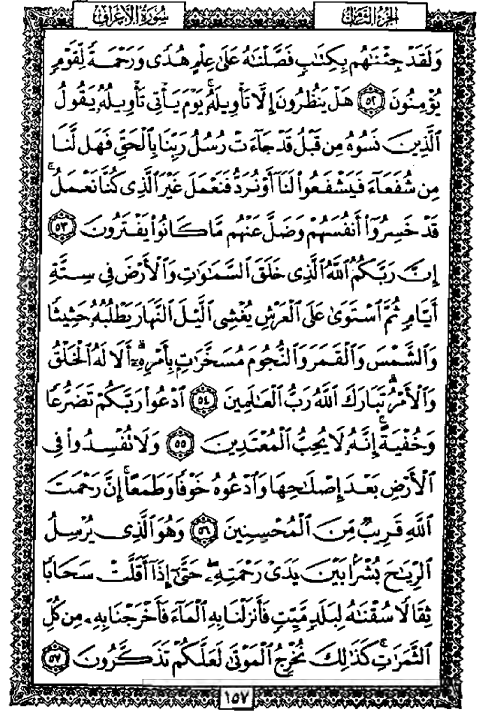 الجزء الثامن
سورة الأعراف
وَلَقَدْ جِئْنَٰهُم بِكِتَٰبٍ فَصَّلْنَٰهُ عَلَىٰ عِلْمٍ هُدًى وَرَحْمَةً لِّقَوْمٍ
يُؤْمِنُونَ ٥٢ هَلْ يَنظُرُونَ إِلَّا تَأْوِيلَهُۥ يَوْمَ يَأْتِى تَأْوِيلُهُۥ يَقُولُ
ٱلَّذِينَ نَسُوهُ مِن قَبْلُ قَدْ جَآءَتْ رُسُلُ رَبِّنَا بِٱلْحَقِّ فَهَل لَّنَا
مِن شُفَعَآءَ فَيَشْفَعُوا۟ لَنَآ أَوْ نُرَدُّ فَنَعْمَلَ غَيْرَ ٱلَّذِى كُنَّا نَعْمَلُ ۚ
قَدْ خَسِرُوٓا۟ أَنفُسَهُمْ وَضَلَّ عَنْهُم مَّا كَانُوا۟ يَفْتَرُونَ ٥٣
إِنَّ رَبَّكُمُ ٱللَّهُ ٱلَّذِى خَلَقَ ٱلسَّمَٰوَٰتِ وَٱلْأَرْضَ فِى سِتَّةِ
أَيَّامٍ ثُمَّ ٱسْتَوَىٰ عَلَى ٱلْعَرْشِ يُغْشِى ٱلَّيْلَ ٱلنَّهَارَ يَطْلُبُهُۥ حَثِيثًا
وَٱلشَّمْسَ وَٱلْقَمَرَ وَٱلنُّجُومَ مُسَخَّرَٰتٍۭ بِأَمْرِهِۦٓ ۗ أَلَا لَهُ ٱلْخَلْقُ
وَٱلْأَمْرُ ۗ تَبَارَكَ ٱللَّهُ رَبُّ ٱلْعَٰلَمِينَ ٥٤ ٱدْعُوا۟ رَبَّكُمْ تَضَرُّعًا
وَخُفْيَةً ۚ إِنَّهُۥ لَا يُحِبُّ ٱلْمُعْتَدِينَ ٥٥ وَلَا تُفْسِدُوا۟ فِى
ٱلْأَرْضِ بَعْدَ إِصْلَٰحِهَا وَٱدْعُوهُ خَوْفًا وَطَمَعًا ۚ إِنَّ رَحْمَتَ
ٱللَّهِ قَرِيبٌ مِّنَ ٱلْمُحْسِنِينَ ٥٦ وَهُوَ ٱلَّذِى يُرْسِلُ
ٱلرِّيَٰحَ بُشْرًۢا بَيْنَ يَدَىْ رَحْمَتِهِۦ ۖ حَتَّىٰٓ إِذَآ أَقَلَّتْ سَحَابًا
ثِقَالًا سُقْنَٰهُ لِبَلَدٍ مَّيِّتٍ فَأَنزَلْنَا بِهِ ٱلْمَآءَ فَأَخْرَجْنَا بِهِۦ مِن كُلِّ
ٱلثَّمَرَٰتِ ۚ كَذَٰلِكَ نُخْرِجُ ٱلْمَوْتَىٰ لَعَلَّكُمْ تَذَكَّرُونَ ٥٧
١٥٧